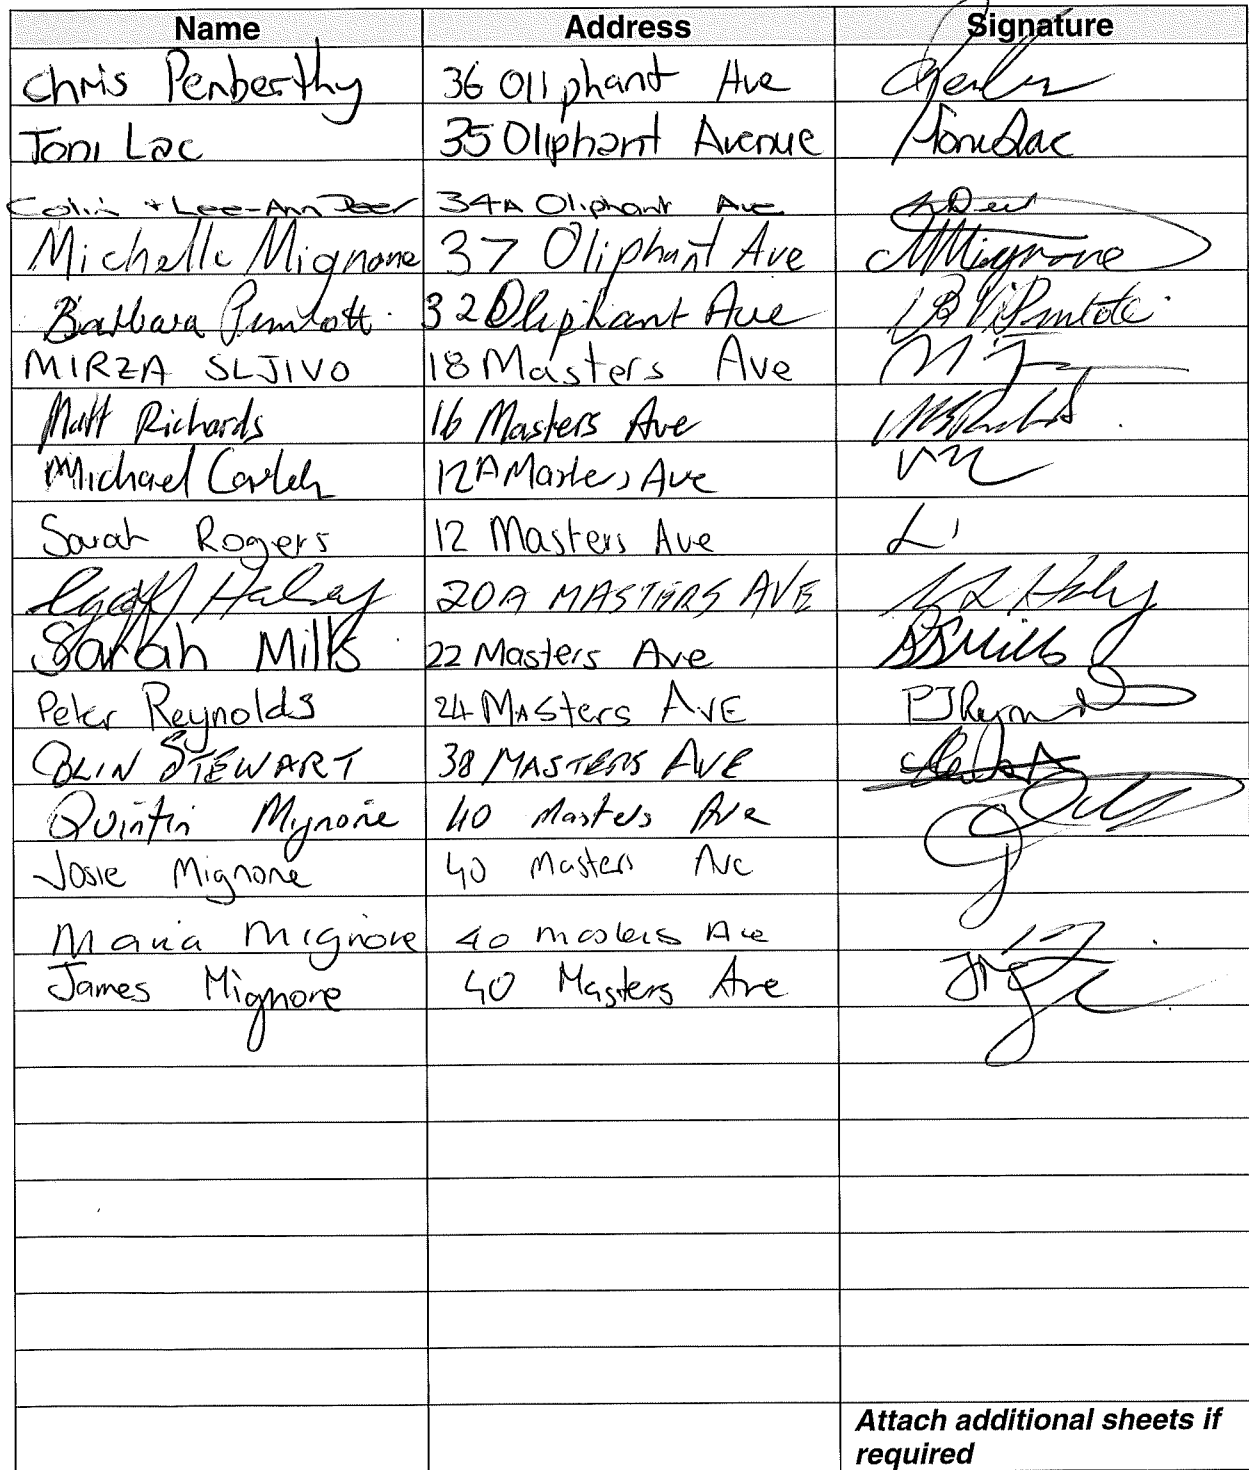 Name Address Signature
Chris Penberthy 36 Oliphant Ave
Toni Lac 35 Oliphant Avenue Toni Lac
Colin + Lee-Ann Deer 34A Oliphant Ave
Michelle Mignone 37 Oliphant Ave MMignone
Barbara 32 Oliphant Ave
MIRZA SLJIVO 18 Masters Ave
Matt Richards 16 Masters Ave
Michael 12A Masters Ave
Sarah Rogers 12 Masters Ave
Geoff Halsey 20A MASTERS AVE
Sarah Mills 22 Masters Ave SMills
Peter Reynolds 24 MAsters AVE
COLIN STEWART 38 MASTERS AVE
Quintin Mignone 40 Masters Ave
Josie Mignone 40 Masters Ave
Maria Mignone 40 Masters Ave
James Mignone 40 Masters Ave
Attach additional sheets if
required